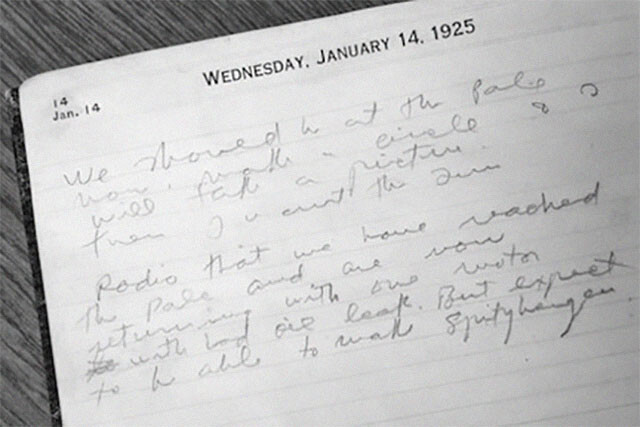 WEDNESDAY, JANUARY 14, 1925
14
Jan. 14
We should be at the Pole
now. make a circle &
will take a picture.
Then I want the Sun
Radio that we have reached
the Pole and are now
returning with one motor
with bad oil leak. But expect
to be able to make Spitzbergen